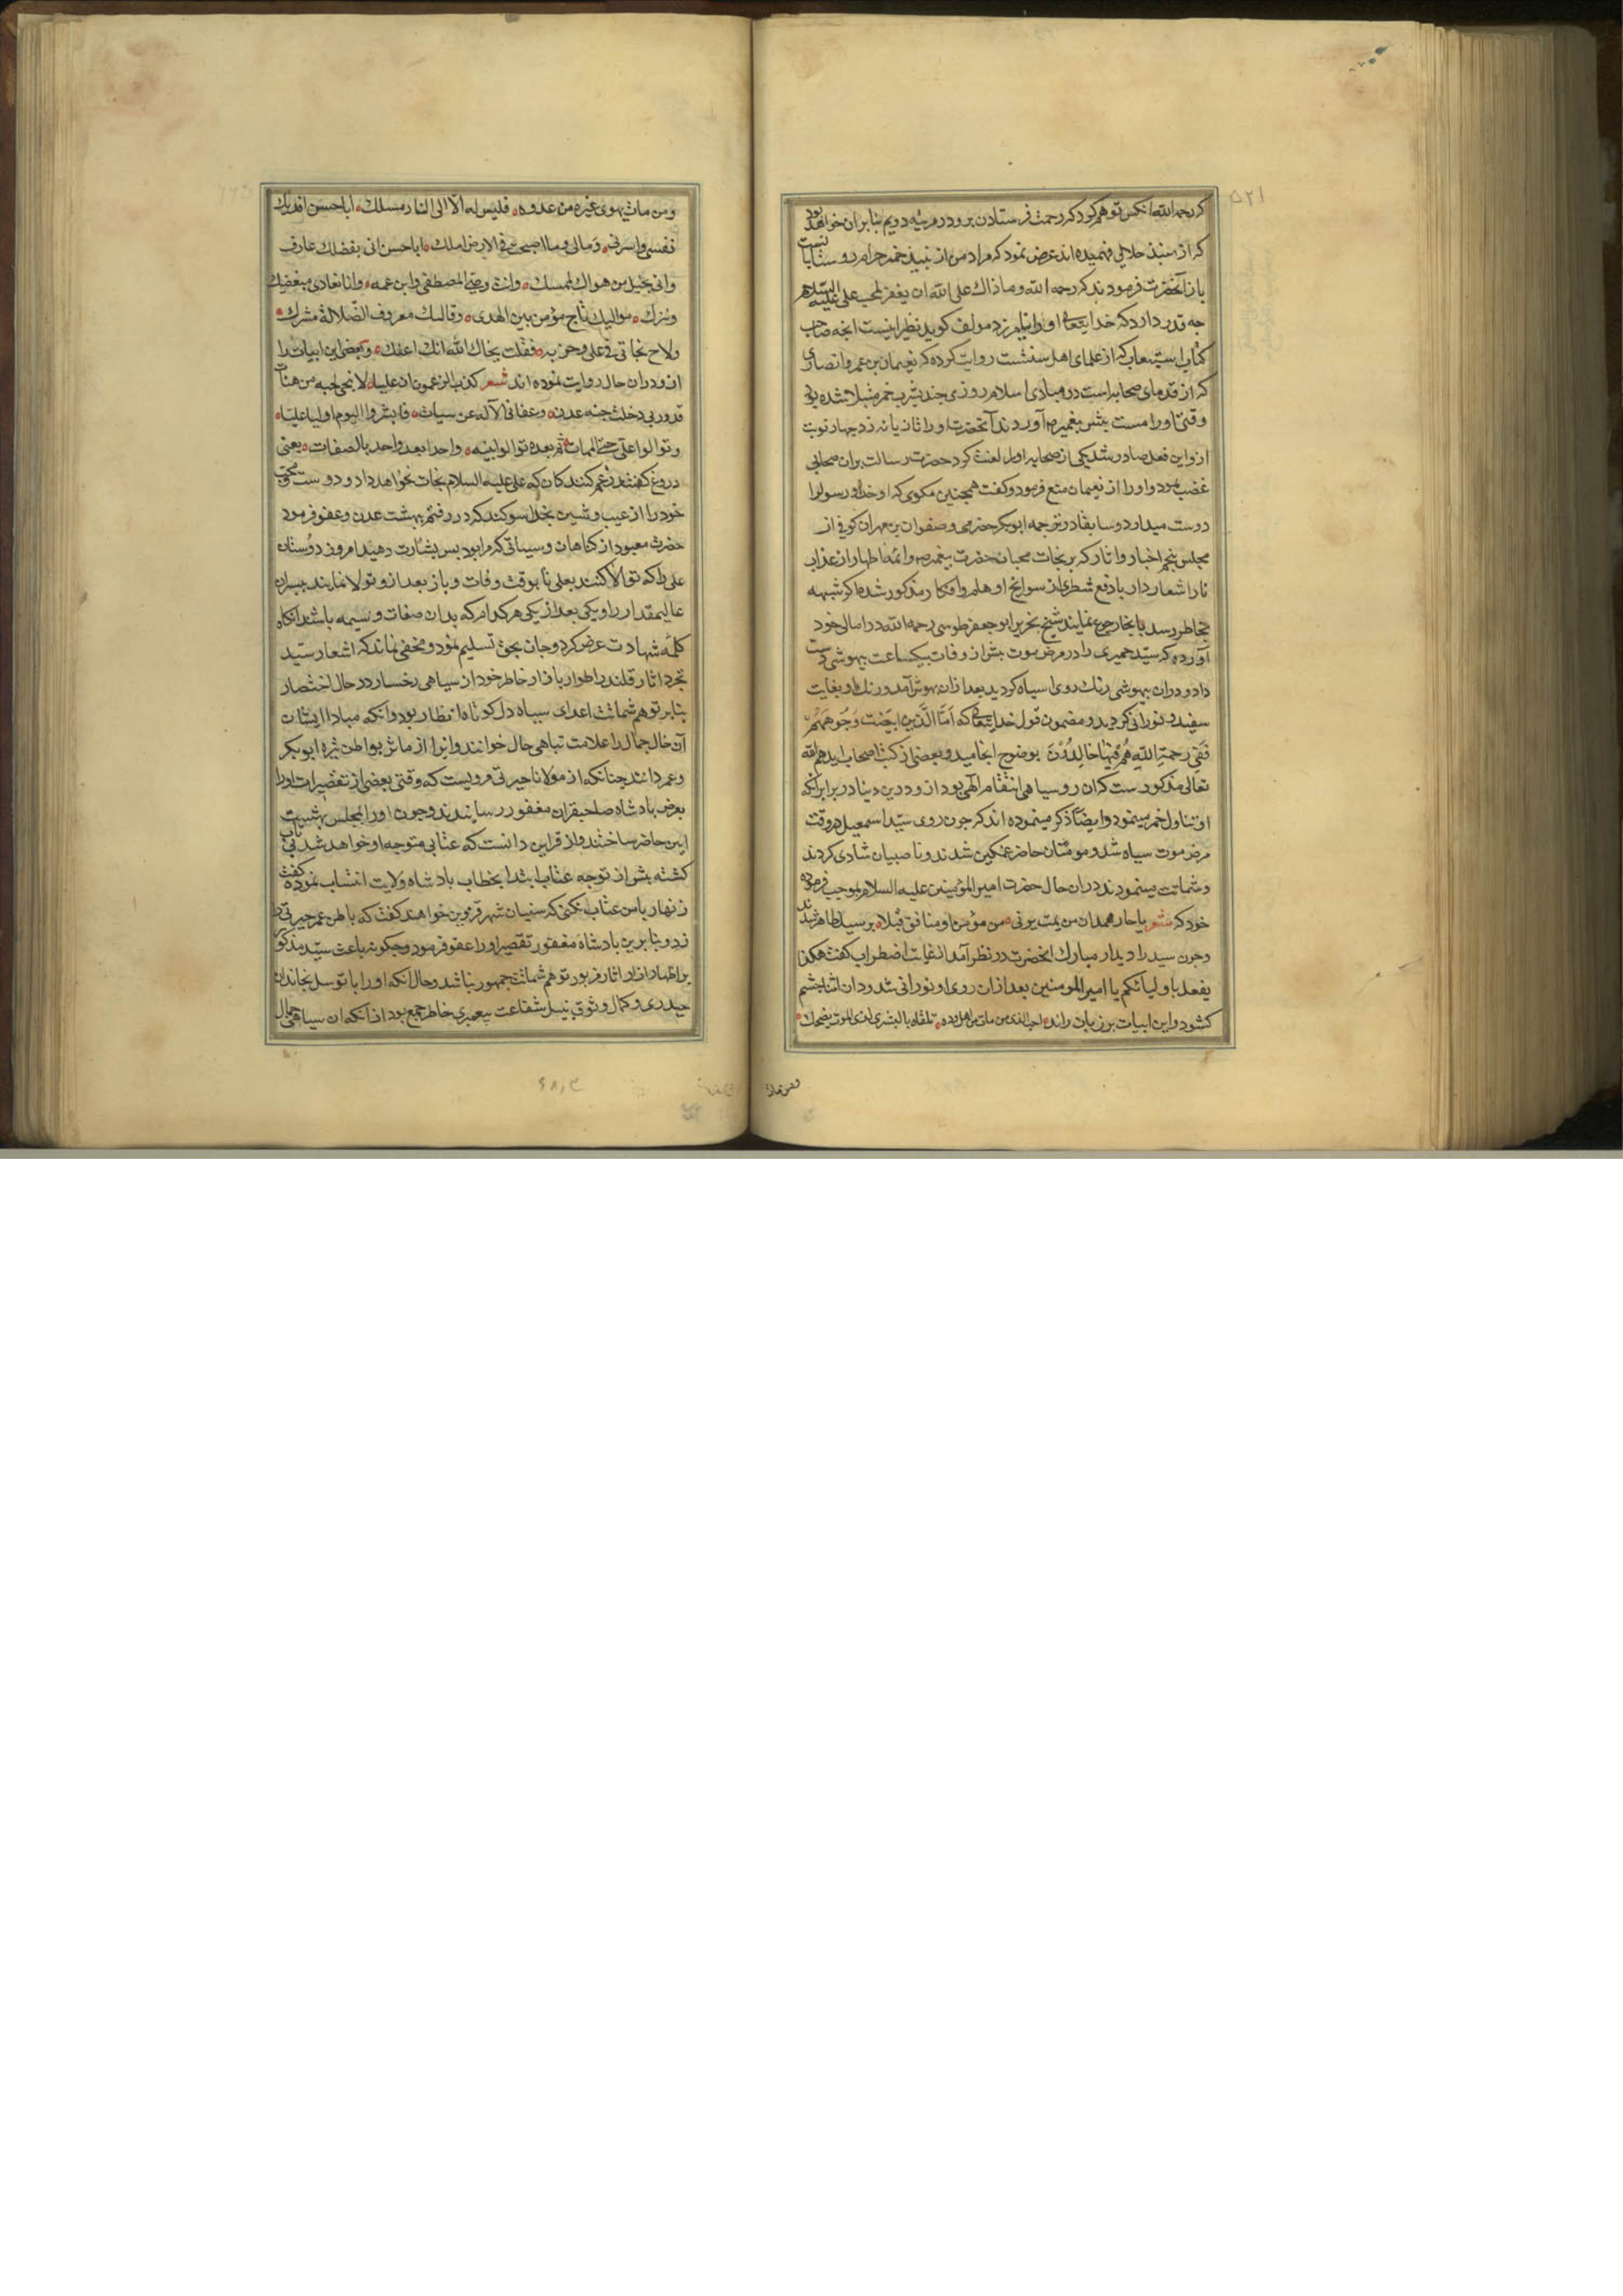 ۵۲۱
که رحمه الله آنکس توهم کرد که رحمت فرستادن برو در مرتبه دویم بنابران خواهد بود
که از نبیذ حلالی فهمیده اند عرض نمود که مراد من از نبیذ خمر حرام
باز آنحضرت فرمودند که رحمه الله وما ذاک علی الله ان یغفر لمحب علی علیه السلام
چه قدر دارد که خدایتعالی او را نیامرزد مولف کوید نظیر اینست انچه صاحب
کتاب استیعاب که از علمای اهل سنتست روایت کرده که نعیمان بن عمرو انصاری
که از قدمای صحابه است در مبادی اسلام روزی چند بشرب خمر مبتلا شده بود
وقتی او را مست پیش پیغمبر ص آوردند آنحضرت او را تازیانه زد چهار نوبت
ازو این فعل صادر شد یکی از صحابه او را لعنت کرد حضرت رسالت بران صحابی
غضب نمود و او را از نعیمان منع فرمود و کفت همچنین مکوی که او خدا و رسول را
دوست میدارد و سابقا در ترجمه ابوبکر حضرمی و صفوان بن مهران کوفی از
مجلس پنجم اخبار و اثار که بر نجات محبان حضرت پیغمبر ص وائمه اطهار از عذاب
نار اشعار دارد با دفع شطری از سوانح اوهام وافکار مذکور شده اکر شبهه
بخاطر رسد بانجا رجوع نمایند شیخ نحریر ابو جعفر طوسی رحمه الله در امالی خود
آورده که سید حمیری را در مرض موت پیش از وفات بیکساعت بیهوشی دست
داد و دران بیهوشی رنک روی او سیاه کردید بعد ازان بهوش آمد و رنک او بغایت
سفید و نورانی کردید و مضمون قول خدایتعالی که اما الذین ابیضت وجوههم
ففی رحمة الله هم فیها خالدون بوضوح انجامید و بعضی از کتب اصحاب ایدهم الله
تعالی مذکورست که ان روسیاهی انتقام الهی بود ازو درین دنیا در برابر آنکه
او تناول خمر مینمود وایضا ذکر مینموده اند که چون روی سید اسمعیل در وقت
مرض موت سیاه شد و مومنان حاضر غمکین شدند و ناصبیان شادی کردند
و شماتت مینمودند دران حال حضرت امیر المؤمنین علیه السلام بموجب فرموده
خود که شعر یا حار همدان من یمت یرنی من مؤمن او منافق قبلا بر سید ظاهر شدند
وچون سید را دیدار مبارک انحضرت در نظر آمد از غایت اضطراب کفت هکذا
یفعل باولیائکم یا امیر المومنین بعد ازان روی او نورانی شد و دران اثنا چشم
کشود و این ابیات بر زبان راند احب الذی من مات من اهل وده تلقاه بالبشری لدی الموت یضحک
ومن مات
ومن مات یهوی غیره من عدوه فلیس له الا الی النار مسلک ابا حسن افدیک
نفسی واسرتی ومالی وما اصبحت فی الارض املک ابا حسن انی بفضلک عارف
وانی بحبل من هواک لممسک وانت وصی المصطفی وابن عمه وانا نعادی مبغضیک
ونترک موالیک ناج مؤمن بین الهدی وقالیک معروف الضلالة مشرک
ولاح لحانی فی علی وحزبه فقلت لحاک الله انک اعفک وبعضی این ابیات را
ازو دران حال روایت نموده اند شعر کذب الزاعمون ان علیا لا ینجی محبه من هنات
قد وربی دخلت جنه عدن وعفا لی الاله عن سیات فابشروا الیوم اولیا علیا
وتوالوا علی حتی الممات ثم بعده توالوا بنیه واحدا بعد واحد بالصفات یعنی
دروغ کفتند زعم کنندکان که علی علیه السلام نجات نخواهد داد دوست محب
خود را از عیب وشین بخدا سوکند که در رفتم بهشت عدن وعفو فرمود
حضرت معبود از کناهان وسیاتی که مرا بود پس بشارت دهید امروز دوستان
علی را که تولا کنند بعلی تا بوقت وفات و باز بعد ازو تولا نمایند پسران
عالیمقدار را یکی بعد از یکی هر کدام که بدان صفات و سیمه باشد انکاه
کلمه شهادت عرض کرد و جان بحق تسلیم نمود و مخفی نماند که اشعار سید
تجرد اثار قلندر اطوار بازار خاطر خود از سیاهی رخسار در حال احتضار
بنابر توهم شماتت اعدای سیاه دل کوتاه انظار بود وانکه مبادا ایشان
آن خال جمال را علامت تباهی حال خوانند وانرا از ماثر بواطن تیره ابوبکر
وعمر دانند چنانکه از مولانا حیرتی مرویست که وقتی بعضی از تقصیرات او را
بعرض بادشاه صاحبقران مغفور رسانیدند و چون او را بمجلس بهشت
ایین حاضر ساختند و از قراین دانست که عتابی متوجه او خواهد شد بی تاب
کشته پیش از توجه عتاب ابتدا بخطاب بادشاه ولایت انتساب نموده کفت
زنهار با من عتاب نکنی که سنیان شهر قزوین خواهند کفت که باطن عمر حیرتی را
زد و بنابرین بادشاه مغفور تقصیر او را عفو فرمود و چکونه باعث سید مذکور
بر اظهار ازار اثار مزبور توهم شماتت جمهور نباشد و حال آنکه او را با توسل بخاندان
حیدری و کمال وثوق بنیل شفاعت پیغمبری خاطر جمع بود از انکه ان سیاهی جمال